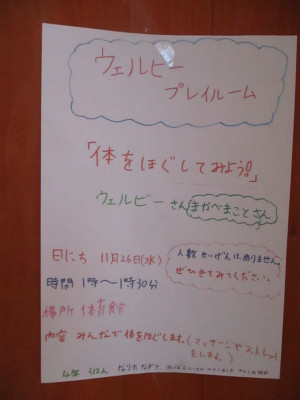 ウェルビー
プレイルーム
「体をほぐしてみよう!」
ウェルビーさん(まかべまことさん)
日にち 11月26日(水)
人数せいげんはありません。
ぜひきてみてください。
時間 1時〜1時30分
場所 体育館
内容 みんなで体をほぐします。(マッサージやストレッチ
をします。)